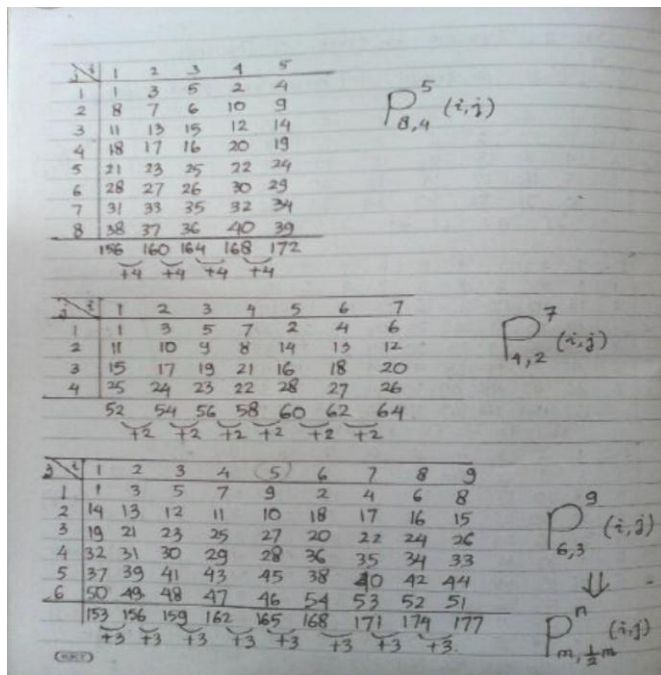 j i 1 2 3 4 5
1 1 3 5 2 4
2 8 7 6 10 9
3 11 13 15 12 14
4 18 17 16 20 19
5 21 23 25 22 24
6 28 27 26 30 29
7 31 33 35 32 34
8 38 37 36 40 39
156 160 164 168 172
+4 +4 +4 +4
P 5 8,4 (i,j)
j i 1 2 3 4 5 6 7
1 1 3 5 7 2 4 6
2 11 10 9 8 14 13 12
3 15 17 19 21 16 18 20
4 25 24 23 22 28 27 26
52 54 56 58 60 62 64
+2 +2 +2 +2 +2 +2
P 7 4,2 (i,j)
j i 1 2 3 4 5 6 7 8 9
1 1 3 5 7 9 2 4 6 8
2 14 13 12 11 10 18 17 16 15
3 19 21 23 25 27 20 22 24 26
4 32 31 30 29 28 36 35 34 33
5 37 39 41 43 45 38 40 42 44
6 50 49 48 47 46 54 53 52 51
153 156 159 162 165 168 171 174 177
+3 +3 +3 +3 +3 +3 +3 +3
P 9 6,3 (i,j)
⇓
P n m,½m (i,j)